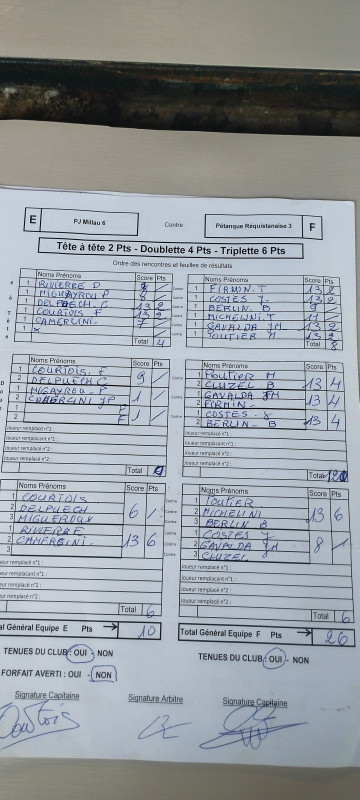 E PJ Millau 6 Contre Pétanque Réquistanaise 3 F
Tête à tête 2 Pts - Doublette 4 Pts - Triplette 6 Pts
Ordre des rencontres et feuilles de résultats
Noms Prénoms Score Pts Noms Prénoms Score Pts
1 RIVIERRE D Contre 1 FIRMIN.T 13 2
1 8 1 COSTES J. 13 2
1 DELPUECH. C 13 2 1 BERLIN. B 9
1 COURTOIS F 13 2 1 MICHELINI.T 11
1 CAMERLINI. 7 1 GAVALDA JM 13 2
1 X 1 POUTIER M. 13 2
Total 4 Total 8
Noms Prénoms Score Pts Noms Prénoms Score Pts
1 COURTOIS. F 9 Contre 1 POUTIER M 13 4
2 DELPUECH C 2 CLUZEL B
1 1 Contre 1 GAVALDA JM 13 4
2 2 FIRMIN.
1 F 1 Contre 1 COSTES 13 4
2 F 2 BERLIN - B
Joueur remplacé n°1 : Joueur remplacé n°1 :
Joueur remplaçant n°1 : Joueur remplaçant n°1 :
Joueur remplacé n°2 : Joueur remplacé n°2 :
Total Total
Noms Prénoms Score Pts Noms Prénoms Score Pts
1 COURTOIS 1 POUTIER
2 DELPUECH 6 Contre 2 MICHELINI 13 6
3 3 BERLIN B
1 RIVIERRE. 1 COSTES J
2 13 6 Contre 2 GAVALDA JM 8
3 3 CLUZEL
Joueur remplacé n°1 : Joueur remplacé n°1 :
Joueur remplaçant n°1 : Joueur remplaçant n°1 :
Joueur remplacé n°2 : Joueur remplacé n°2 :
Total 6 Total 6
Total Général Equipe E Pts 10 Total Général Equipe F Pts 26
TENUES DU CLUB : OUI - NON TENUES DU CLUB : OUI - NON
FORFAIT AVERTI : OUI - NON
Signature Capitaine Signature Arbitre Signature Capitaine
Courtois